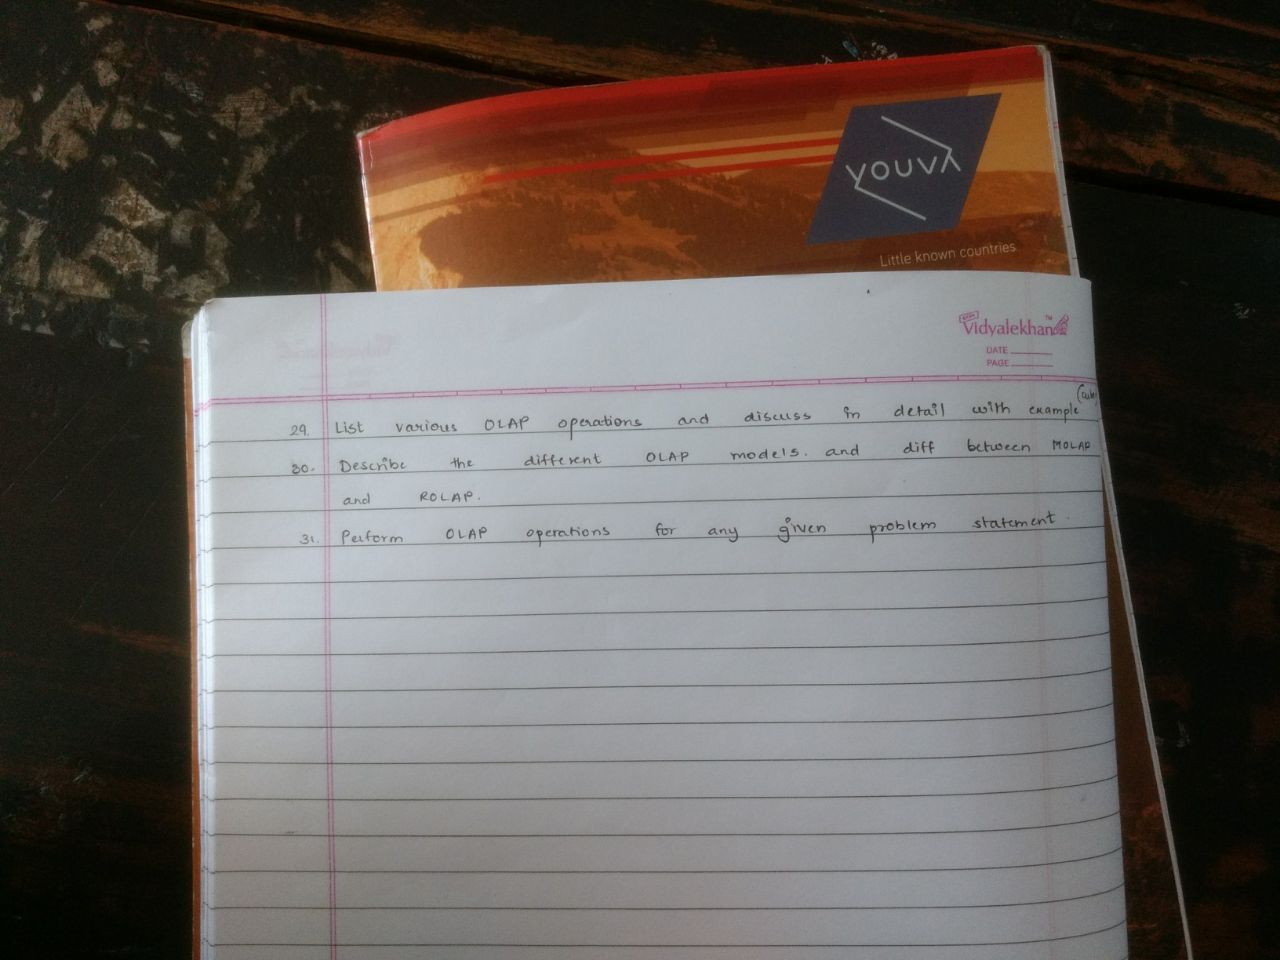 YOUVA
Little known countries
Vidyalekhan™
DATE
PAGE
29. List various OLAP operations and discuss in detail with example
30. Describe the different OLAP models. and diff between MOLAP
and ROLAP.
31. Perform OLAP operations for any given problem statement.